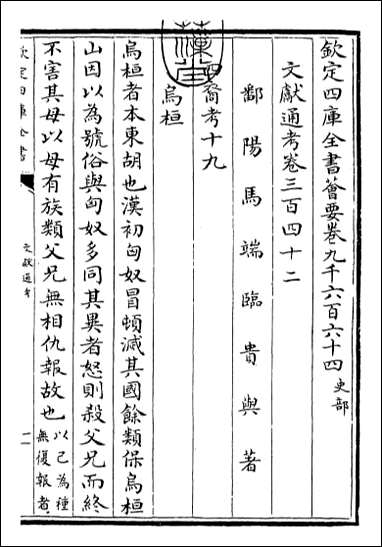 欽定四庫全書薈要卷九千六百六十四 史部
文獻通考卷三百四十二
鄱陽馬端臨貴與著
四裔考十九
烏桓
烏桓者本東胡也漢初匈奴冒頓滅其國餘類保烏桓
山因以為號俗與匈奴多同其異者怒則殺父兄而終
不害其母以母有族類父兄無相仇報故也以己為種
無復報者
欽定四庫全書
文獻通考